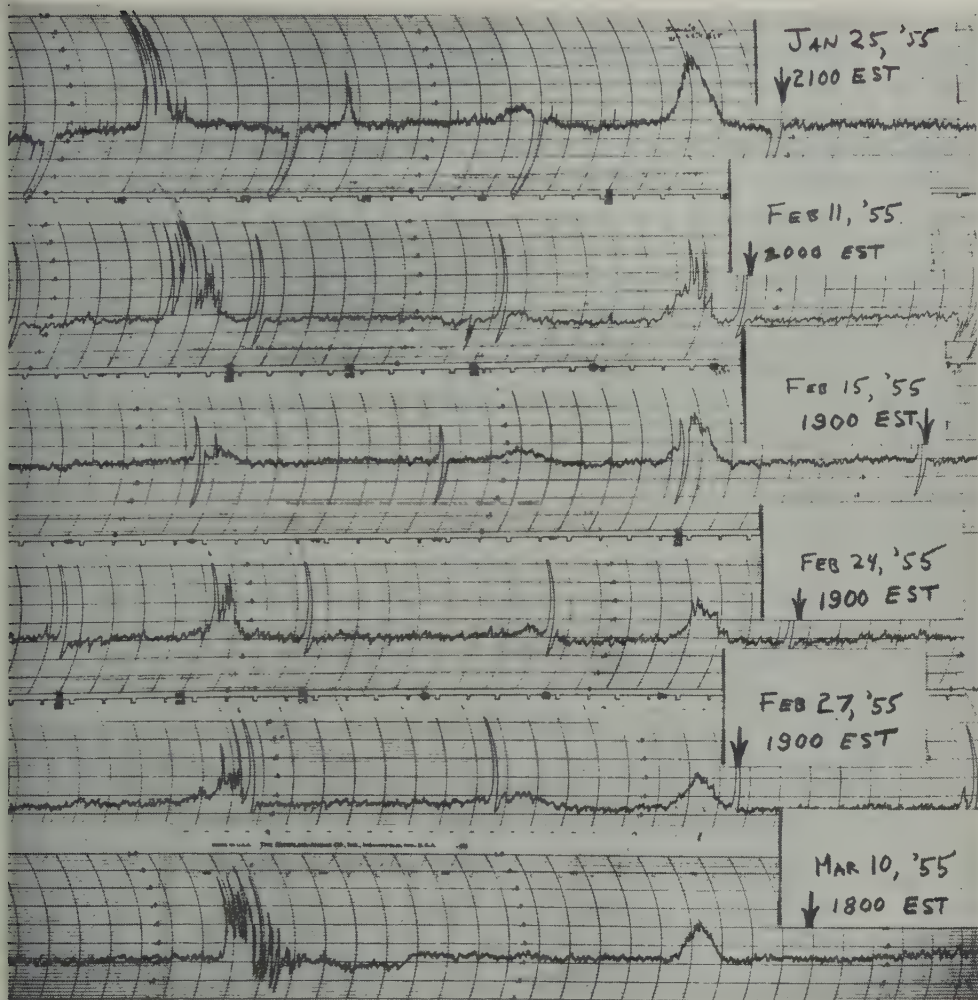 JAN 25, '55
2100 EST
FEB 11, '55
2000 EST
FEB 15, '55
1900 EST
FEB 24, '55
1900 EST
FEB 27, '55
1900 EST
MAR 10, '55
1800 EST